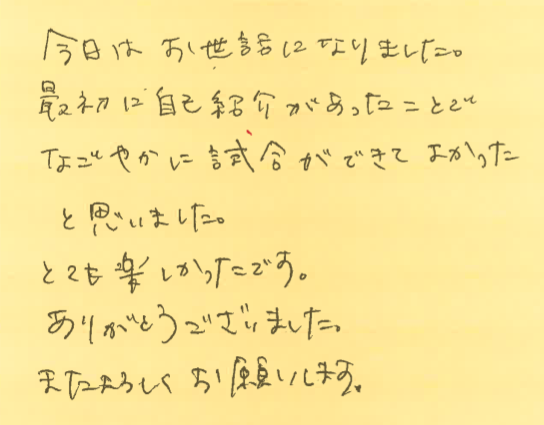 今日は お世話になりました。
最初に自己紹介があったことで
なごやかに試合ができてよかった
と思いました。
とても楽しかったです。
ありがとうございました。
またよろしくお願いします。